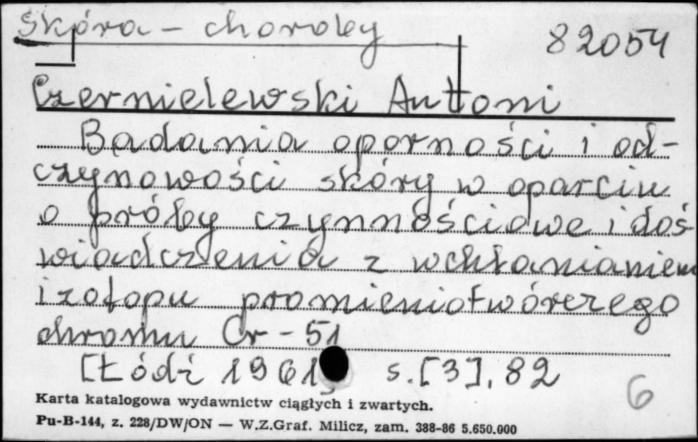 Skóra - choroby 82054
Czernielewski Antoni
Badania oporności i od-
czynowości skóry w oparciu
o próby czynnościowe i doś
wiadczenia z wchłanianiem
izotopu promieniotwórczego
chromu Cr-51
[Łódź 1961] s.[3], 82
6
Karta katalogowa wydawnictw ciągłych i zwartych.
Pu-B-144, z. 228/DW/ON — W.Z.Graf. Milicz, zam. 388-86 5.650.000